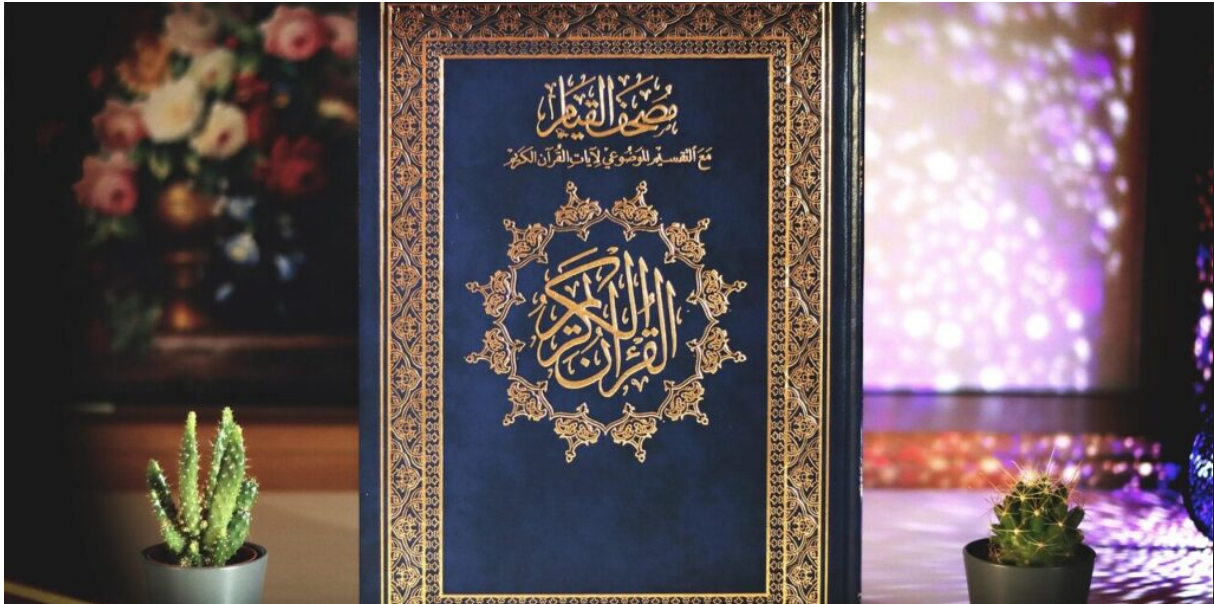 مُصْحَفُ القِيَام
مَعَ التَّقْسِيْمِ المَوْضُوْعِيّ لِآيَاتِ القُرْآنِ الكَرِيْمِ
القُرْآن الكَرِيم